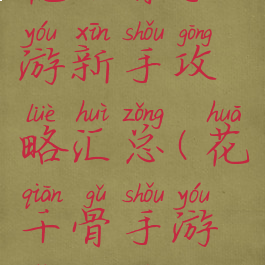 yóu xīn shǒu gōng
游新手攻
lüè huì zǒng huā
略汇总(花
qiān gǔ shǒu yóu
千骨手游